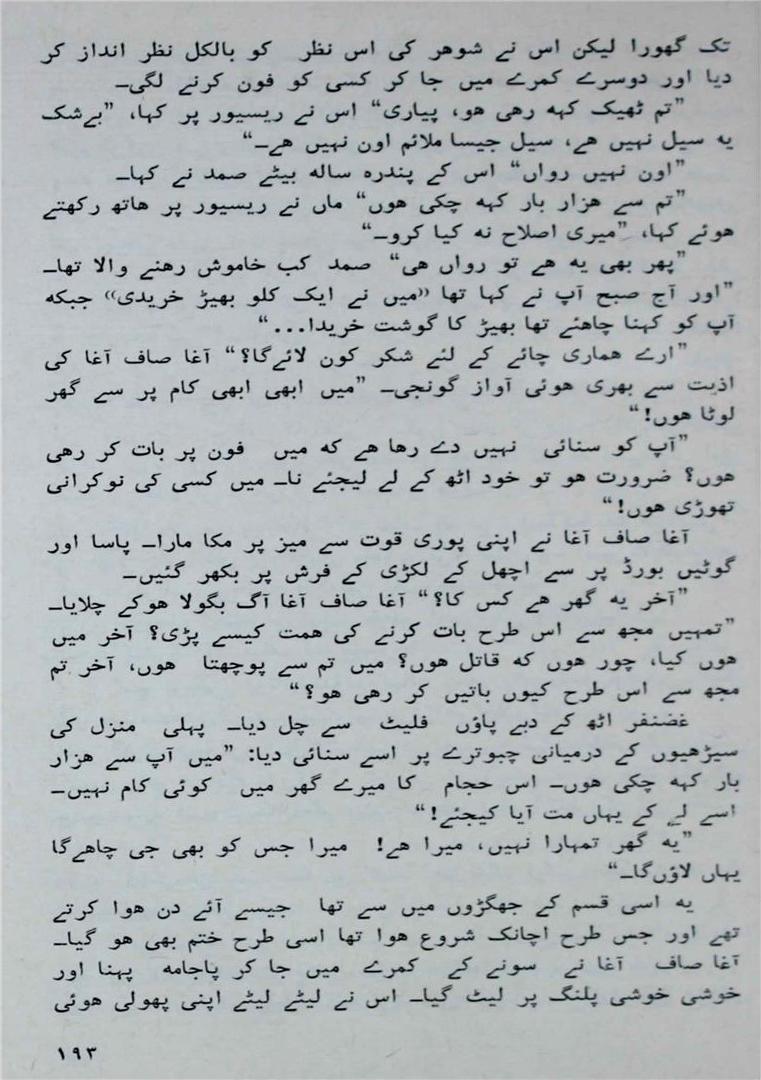 تک گھورا لیکن اس نے شوھر کی اس نظر کو بالکل نظر انداز کر
دیا اور دوسرے کمرے میں جا کر کسی کو فون کرنے لگی۔
”تم ٹھیک کہہ رھی ھو، پیاری“ اس نے ریسیور پر کہا، ”بےشک
یہ سیل نہیں ھے، سیل جیسا ملائم اون نہیں ھے۔“
”اون نہیں رواں“ اس کے پندرہ سالہ بیٹے صمد نے کہا۔
”تم سے ھزار بار کہہ چکی ھوں“ ماں نے ریسیور پر ھاتھ رکھتے
ھوئے کہا، ”میری اصلاح نہ کیا کرو۔“
”پھر بھی یہ ھے تو رواں ھی“ صمد کب خاموش رھنے والا تھا۔
”اور آج صبح آپ نے کہا تھا «میں نے ایک کلو بھیڑ خریدی» جبکہ
آپ کو کہنا چاھئے تھا بھیڑ کا گوشت خریدا...“
”ارے ھماری چائے کے لئے شکر کون لائےگا؟“ آغا صاف آغا کی
اذیت سے بھری ھوئی آواز گونجی۔ ”میں ابھی ابھی کام پر سے گھر
لوٹا ھوں!“
”آپ کو سنائی نہیں دے رھا ھے کہ میں فون پر بات کر رھی
ھوں؟ ضرورت ھو تو خود اٹھ کے لے لیجئے نا۔ میں کسی کی نوکرانی
تھوڑی ھوں!“
آغا صاف آغا نے اپنی پوری قوت سے میز پر مکا مارا۔ پاسا اور
گوٹیں بورڈ پر سے اچھل کے لکڑی کے فرش پر بکھر گئیں۔
”آخر یہ گھر ھے کس کا؟“ آغا صاف آغا آگ بگولا ھوکے چلایا۔
”تمہیں مجھ سے اس طرح بات کرنے کی ھمت کیسے پڑی؟ آخر میں
ھوں کیا، چور ھوں کہ قاتل ھوں؟ میں تم سے پوچھتا ھوں، آخر تم
مجھ سے اس طرح کیوں باتیں کر رھی ھو؟“
غضنفر اٹھ کے دبے پاؤں فلیٹ سے چل دیا۔ پہلی منزل کی
سیڑھیوں کے درمیانی چبوترے پر اسے سنائی دیا: ”میں آپ سے ھزار
بار کہہ چکی ھوں۔ اس حجام کا میرے گھر میں کوئی کام نہیں۔
اسے لے کے یہاں مت آیا کیجئے!“
”یہ گھر تمہارا نہیں، میرا ھے! میرا جس کو بھی جی چاھےگا
یہاں لاؤںگا۔“
یہ اسی قسم کے جھگڑوں میں سے تھا جیسے آئے دن ھوا کرتے
تھے اور جس طرح اچانک شروع ھوا تھا اسی طرح ختم بھی ھو گیا۔
آغا صاف آغا نے سونے کے کمرے میں جا کر پاجامہ پہنا اور
خوشی خوشی پلنگ پر لیٹ گیا۔ اس نے لیٹے لیٹے اپنی پھولی ھوئی
۱۹۳